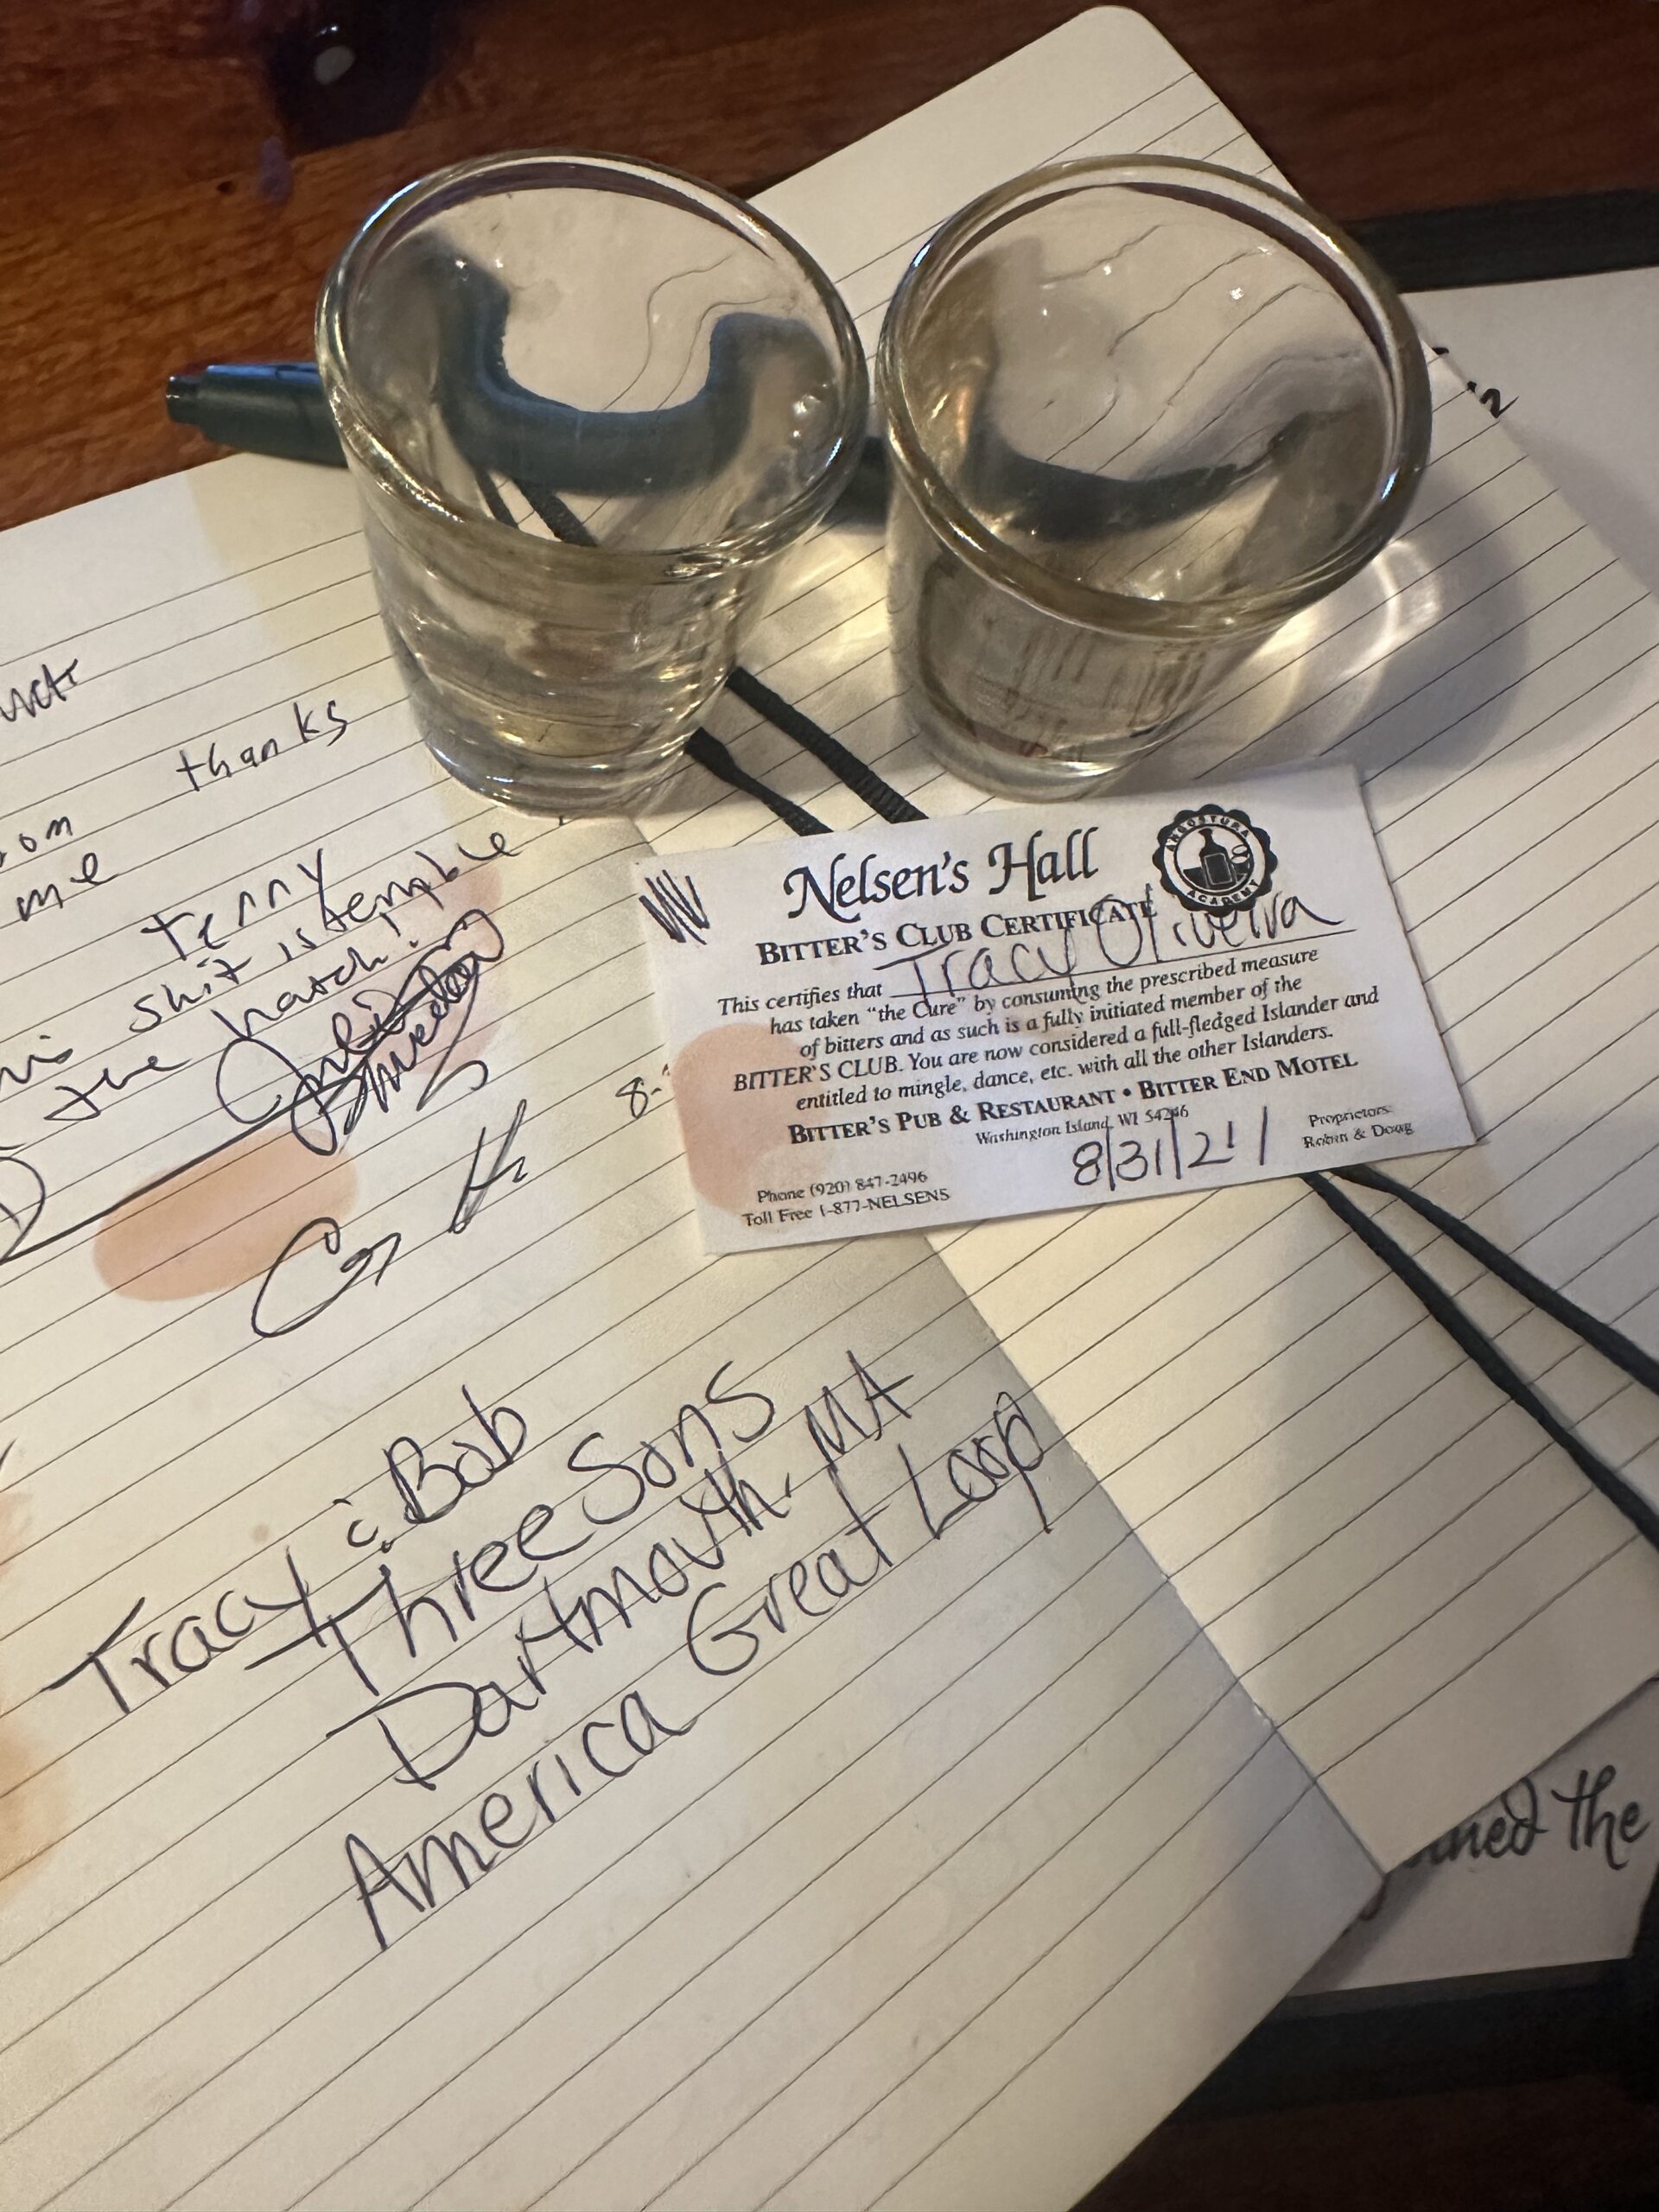 thanks
me
Terry
shit is terrible
the hatch!
8-
Nelsen's Hall
ANGOSTURA
ACADEMY
BITTER'S CLUB CERTIFICATE
This certifies that Tracy Oliveira
has taken "the Cure" by consuming the prescribed measure
of bitters and as such is a fully initiated member of the
BITTER'S CLUB. You are now considered a full-fledged Islander and
entitled to mingle, dance, etc. with all the other Islanders.
BITTER'S PUB & RESTAURANT • BITTER END MOTEL
Washington Island, WI 54246
8/31/21
Phone (920) 847-2496
Toll Free 1-877-NELSENS
Proprietors:
Robin & Doug
Tracy & Bob
Three Sons
Dartmouth, MA
America Great Loop
the